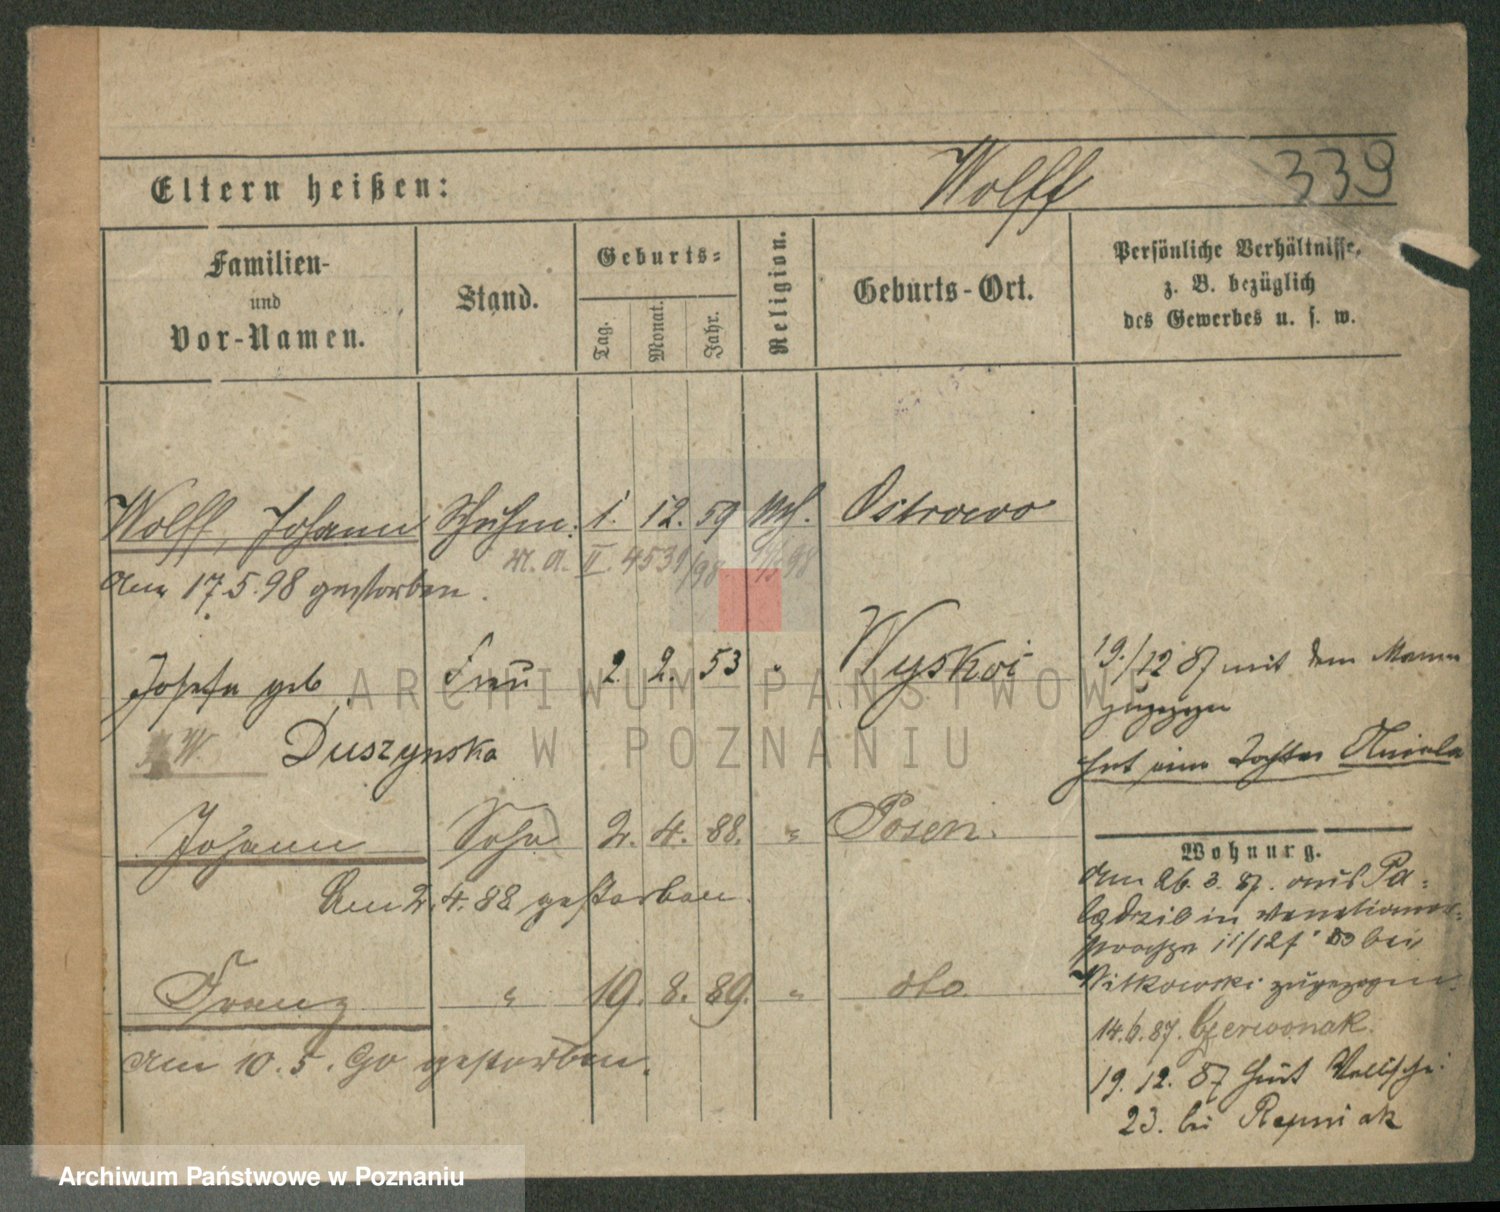 Eltern heißen:
Wolff
339
Familien-
und
Vor-Namen.
Stand.
Geburts-
Tag.
Monat.
Jahr.
Religion.
Geburts-Ort.
Persönliche Verhältnisse,
z. B. bezüglich
des Gewerbes u. s. w.
Wolff, Johann Schuhm. 1. 12. 59 Ostrowo
M. A. II. 4531/98
Am 17.5.98 gestorben.
Josefa geb. Frau 2. 2. 53 " Wyskoi
Duszynska
19./12 87 mit dem Mann
zugezogen
hat eine Tochter
Johann Sohn 2. 4. 88. " Posen.
Am 2. 4. 88 gestorben.
Franz " 19. 8. 89. " dto.
Am 10. 5. 90 gestorben.
Wohnung.
Am 26. 3. 87. aus Pa-
lędzie in Venetianer-
11/12 bei
Witkowski zugezogen.
14. 6. 87. Czerwonak.
19. 12. 87
23. bei Repniak
ARCHIWUM PAŃSTWOWE
W POZNANIU
Archiwum Państwowe w Poznaniu